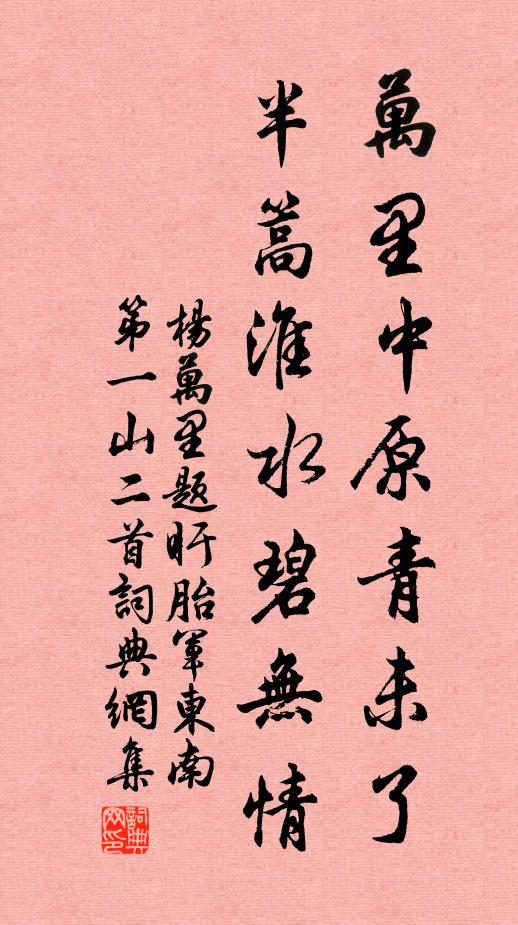 萬里中原青未了
半篙淮水碧無情
楊萬里題盱眙軍東南
第一山二首詞典網集
詞典网印